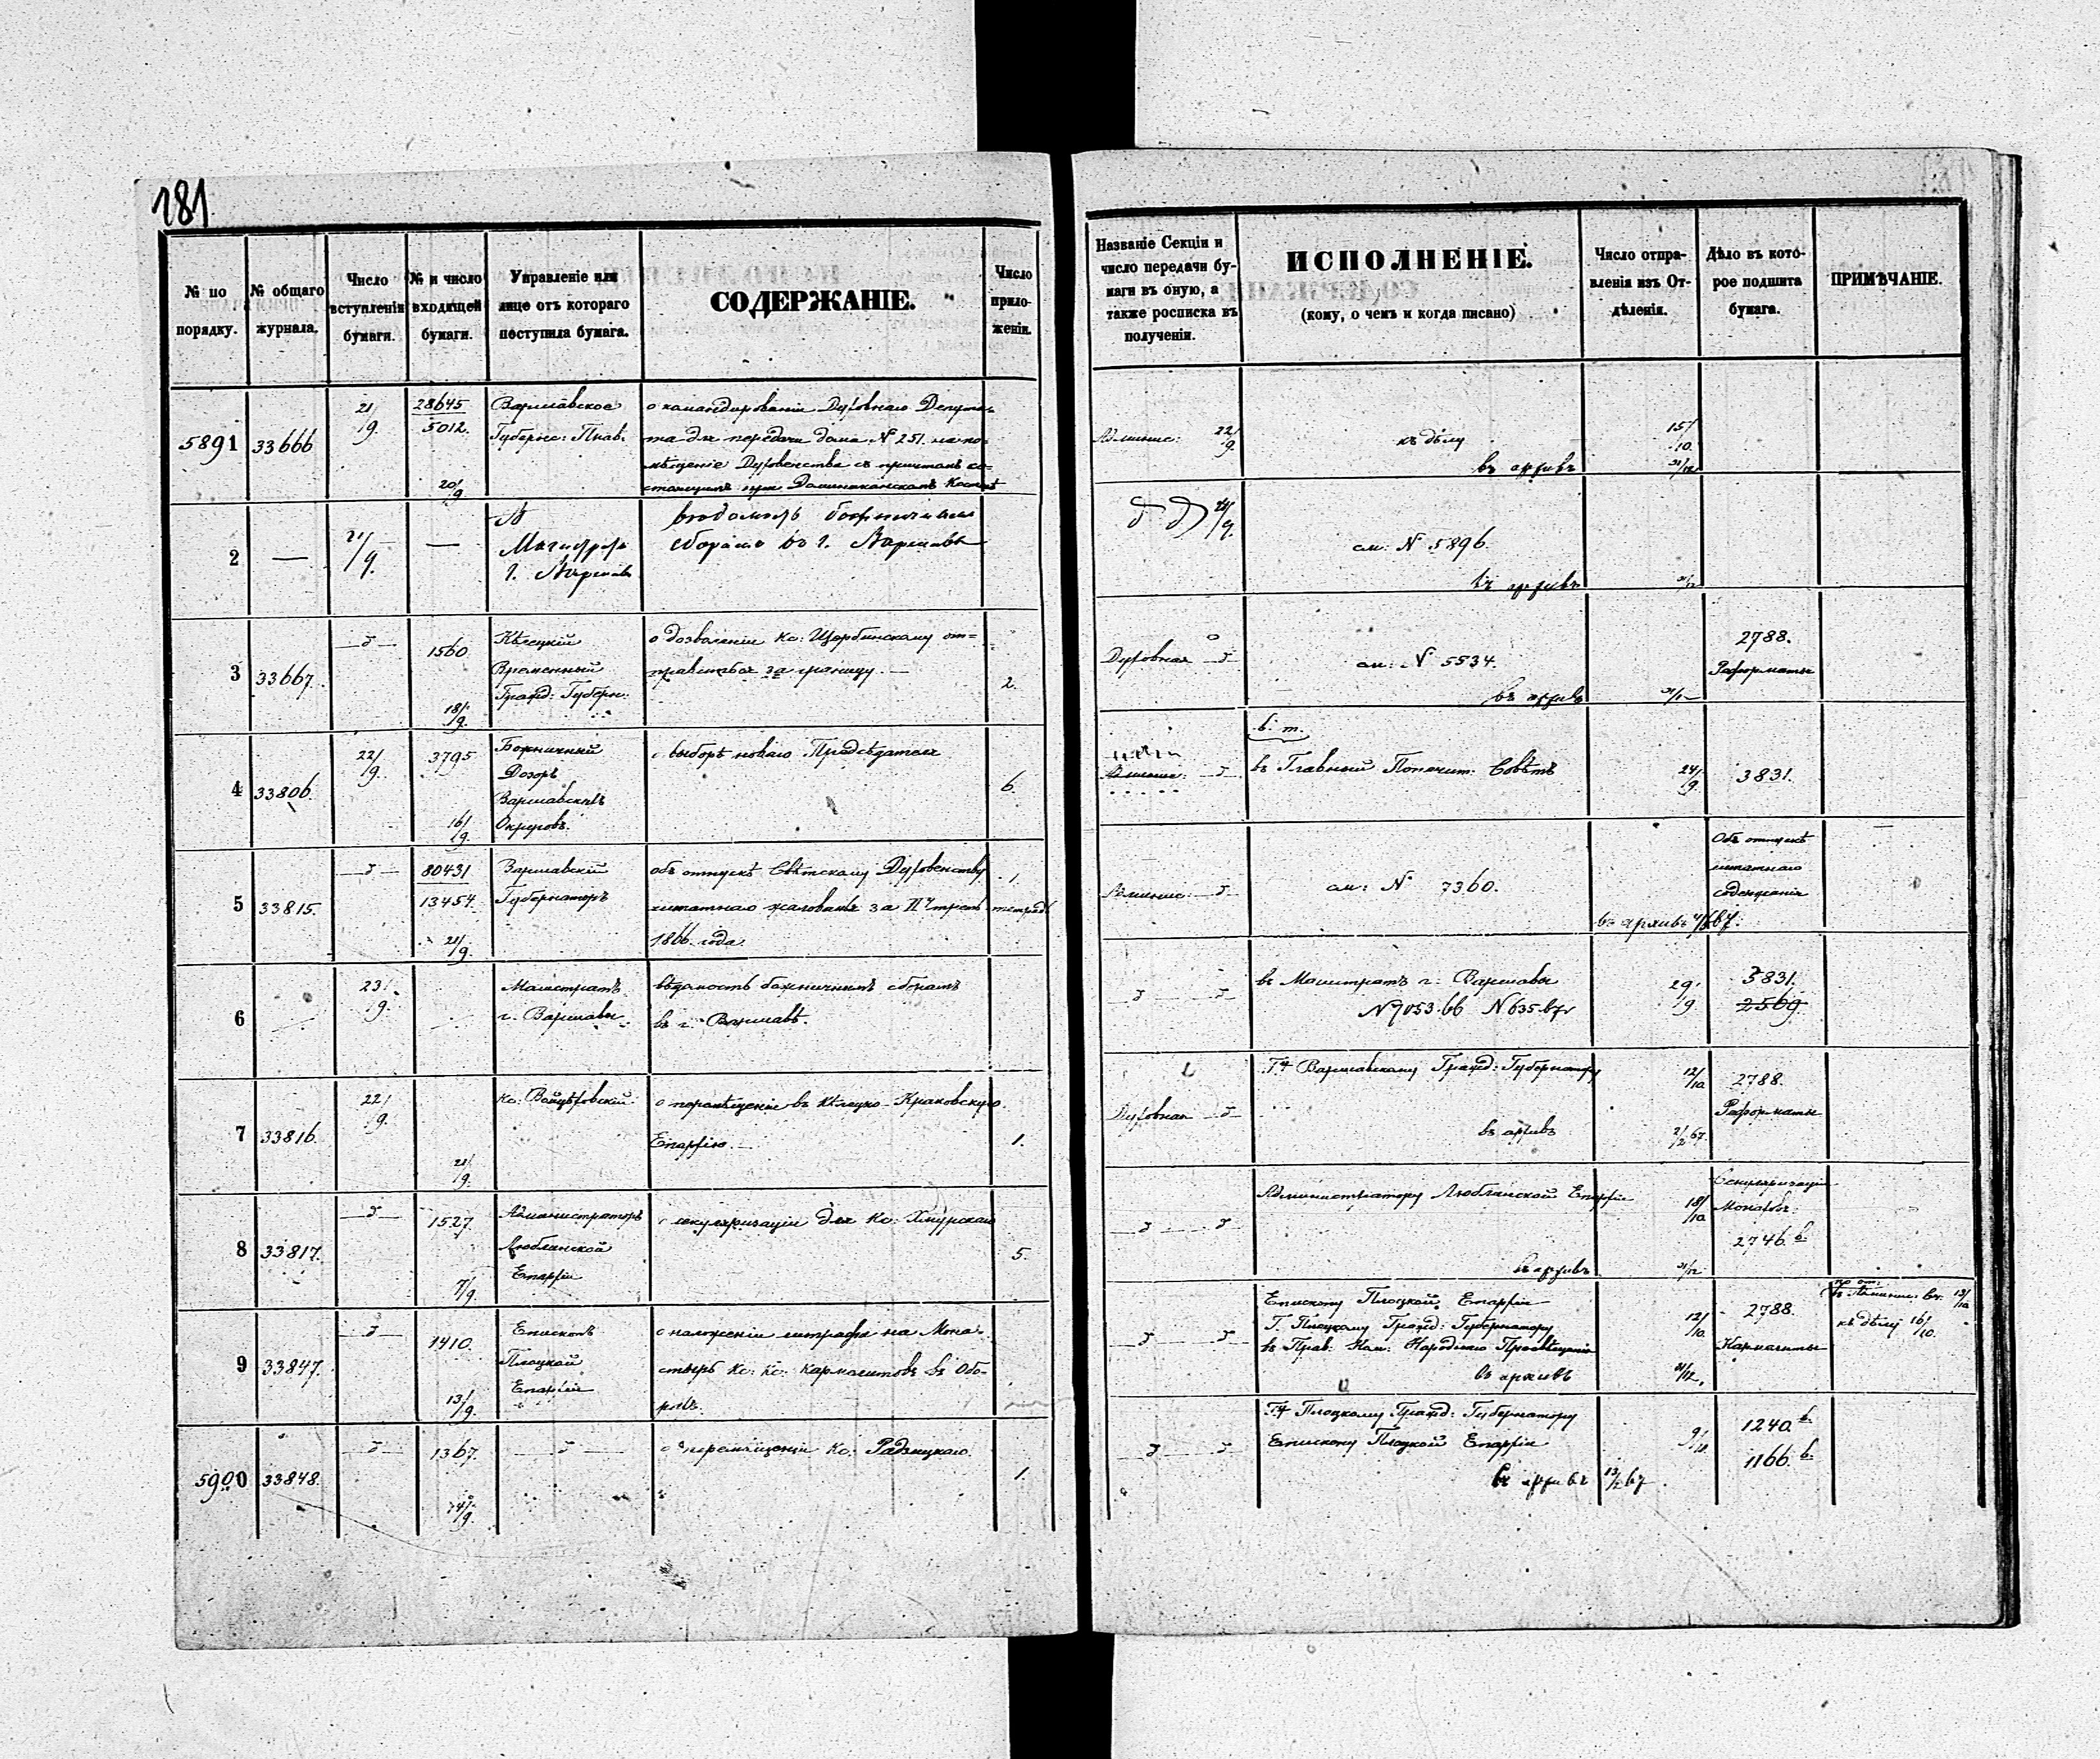 181
№ по порядку.
№ общаго журнала.
Число вступленія бумаги.
№ и число входящей бумаги.
Управленіе или лице отъ котораго поступила бумага.
СОДЕРЖАНІЕ.
Число приложеній.
5891 33666 21/9 28645/5012 20/9
Варшавское
Губернс: Прав.
о командированіи Духовнаго Депута-
та для передачи дома № 251. на по-
мѣщеніе Духовенства съ причтомъ со-
стоящимъ при Доминиканскомъ
2 — 21/9 —
Магистратъ
г. Варшавы
сборамъ въ г. Варшавѣ
3 33667 1560 18/9
Кѣлецкій
Временный
Гражд: Губерн:
о дозволеніи Кс: Щербинскому от=
правиться за границу. —
2.
4 33806. 22/9 3795 16/9
Божничный
Дозоръ
Варшавскихъ
Округовъ.
о выборѣ новаго Предсѣдателя
6.
5 33815. 80431/13454. 21/9
Варшавскій
Губернаторъ
объ отпускѣ Свѣтскому Духовенству
штатнаго жалованья за II треть
1866. года.
1.
тетрадь
6 23/9
Магистратъ
г. Варшавы
вѣдомость божничнымъ сборамъ
въ г. Варшавѣ.
7 33816. 22/9 21/9
Кс:
о перемѣщеніи въ Кѣлецко-Краковскую
Епархію. —
1.
8 33817. 1527. 7/9
Администраторъ
Люблинской
Епархіи
о секуляризаціи для Кс:
5.
9 33847. 1410. 13/9
Епископъ
Плоцкой
Епархіи
о наложеніи штрафа на Мона-
стырь Кс: Кс: Кармелитовъ въ Обо-
рахъ.
5900 33848. 1367. 14/9
о перемѣщеніи Кс: Радзицкаго.
1.
Названіе Секціи и
число передачи бу-
маги въ оную, а
также росписка въ
полученіи.
ИСПОЛНЕНІЕ.
(кому, о чемъ и когда писано)
Число отпра-
вленія изъ От-
дѣленія.
Дѣло въ кото-
рое подшита
бумага.
ПРИМѢЧАНІЕ.
22/9
къ дѣлу
15/10.
въ архивъ 31/12
см: № 5896.
въ архивъ 31/12
Духовная
см: № 5534.
2788.
Реформаты
въ архивъ
въ Главный Попечит: Совѣтъ
24/9
3831.
см: № 7360.
Объ отпускѣ
штатнаго
содержанія
въ архивъ
въ Магистратъ г. Варшавы
29/9
3831.
2569
№ 7053.66 № 635.67
Гну Варшавскому Гражд: Губернатору
12/10
2788.
Реформаты
Духовная
въ архивъ
Администратору Люблинской Епархіи
18/10
Секуляризація
Монаховъ:
2746. в.
въ архивъ 31/12
Епископу Плоцкой Епархіи
Г. Плоцкому Гражд: Губернатору
въ Прав: Ком: Народнаго Просвѣщенія
въ архивъ
12/10.
31/12.
2788.
Кармелиты
къ дѣлу 16/10.
Гну Плоцкому Гражд: Губернатору
Епископу Плоцкой Епархіи
1240. в.
1166. в.
въ архивъ